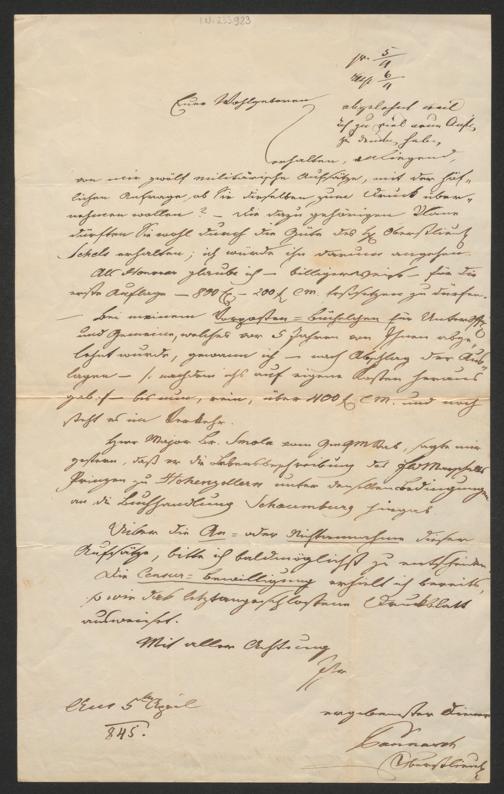 I.N. 233.923
pr. 5/4
exp. 6/4
Euer Wohlgeboren
abgelehnt weil
ich zu viel neue Aufl.
zu drucken habe.
erhalten, anliegend,
von mir zwölf militärische Aufsätze, mit der höf-
lichen Anfrage, ob Sie dieselben zum Druck über-
nehmen wollen? – Die dazu gehörigen Plane
dürften Sie wohl durch die Güte des H. Oberstlieut.
Schels erhalten; ich würde ihn darum angehen.
Als Honorar glaube ich – billigerweise – für die
erste Auflage – 800 – 200 f. C.M. festsetzen zu dürfen.
– Bei meinem Vorposten-Büchlchen für Unteroff.
und Gemeine, welches vor 5 Jahren von Ihnen abge-
lehnt wurde, gewann ich – nach Abschlag der Aus-
lagen – /: nachdem ichs auf eigene Kosten heraus
gab :/ – bis nun, rein, über 400 f. C.M. und noch
steht es im Verkehr.
Herr Major Br. Smola vom GenQMStab, sagte mir
gestern, daß er die Lebensbeschreibung des FeldMarschalls
Prinzen zu Hohenzollern unter denselben Bedingungen
an die Buchhandlung Schaumburg hingab.
Ueber die An- oder Nichtannahme dieser
Aufsätze, bitte ich baldmöglichst zu entscheiden.
Die Censur-Bewilligung erhielt ich bereits,
so wie das letztangeschlossene Druckblatt
ausweiset.
Mit aller Achtung
Ihr
ergebenster Diener
Am 5ten April
845.
Oberstlieut.